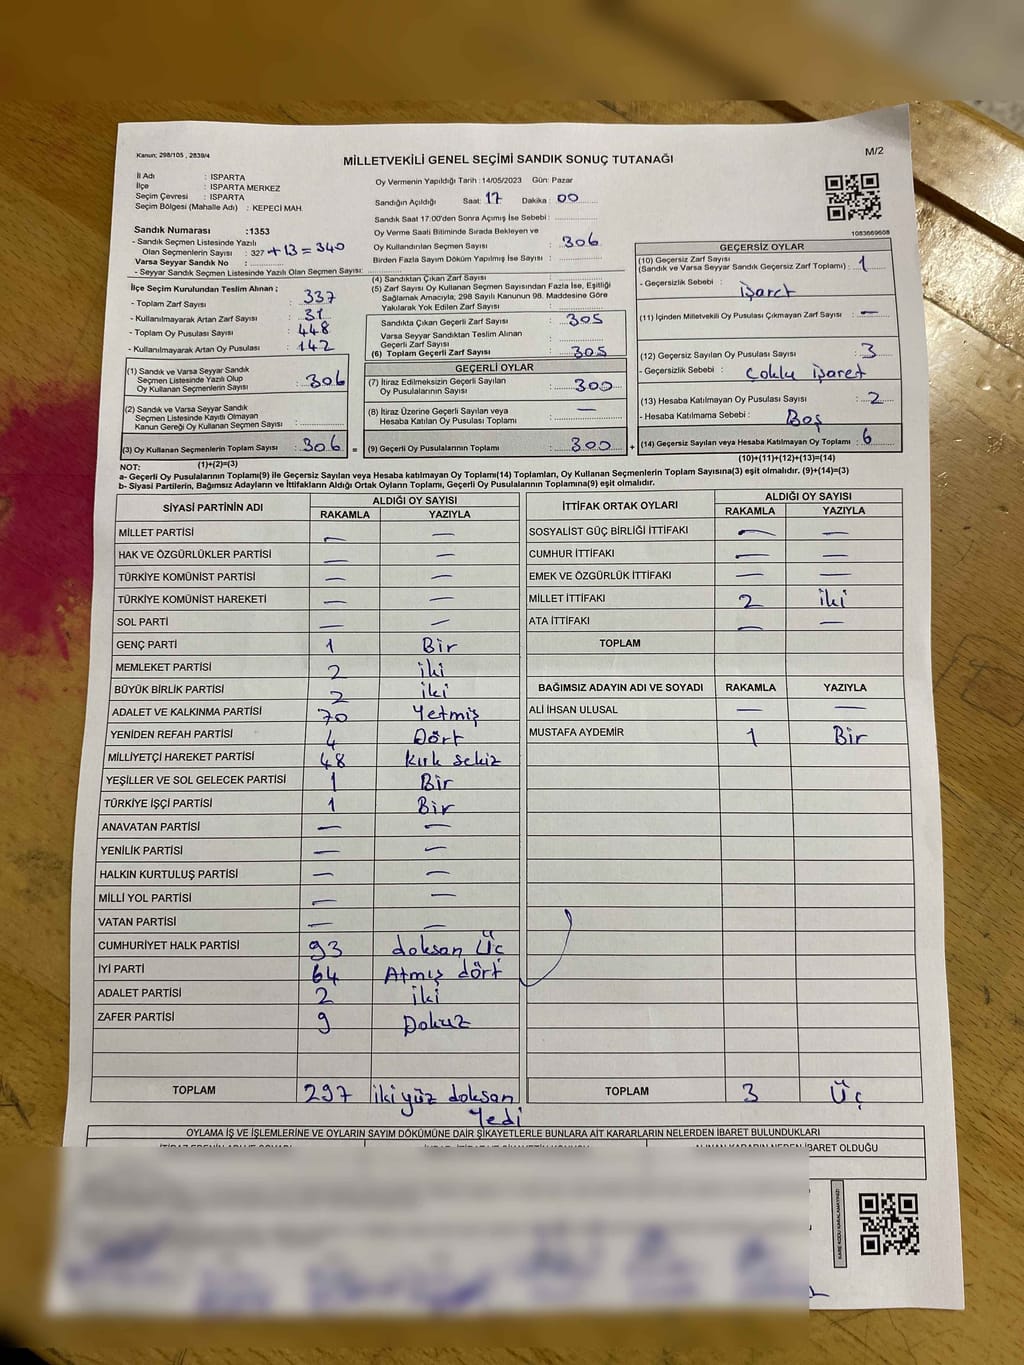 Kanun; 298/105 , 2839/4
MİLLETVEKİLİ GENEL SEÇİMİ SANDIK SONUÇ TUTANAĞI
M/2
İl Adı : ISPARTA
İlçe : ISPARTA MERKEZ
Seçim Çevresi : ISPARTA
Seçim Bölgesi (Mahalle Adı) : KEPECİ MAH.
Sandık Numarası :1353
- Sandık Seçmen Listesinde Yazılı
Olan Seçmenlerin Sayısı : 327 +13 = 340
Varsa Seyyar Sandık No :
- Seyyar Sandık Seçmen Listesinde Yazılı Olan Seçmen Sayısı:
Oy Vermenin Yapıldığı Tarih : 14/05/2023 Gün: Pazar
Sandığın Açıldığı Saat: 17 Dakika : 00
Sandık Saat 17:00'den Sonra Açımış İse Sebebi :
Oy Verme Saati Bitiminde Sırada Bekleyen ve
Oy Kullandırılan Seçmen Sayısı : 306
Birden Fazla Sayım Döküm Yapılmış İse Sayısı :
1083669608
İlçe Seçim Kurulundan Teslim Alınan ;
- Toplam Zarf Sayısı : 337
- Kullanılmayarak Artan Zarf Sayısı : 31
- Toplam Oy Pusulası Sayısı : 448
- Kullanılmayarak Artan Oy Pusulası : 142
(1) Sandık ve Varsa Seyyar Sandık
Seçmen Listesinde Yazılı Olup
Oy Kullanan Seçmenlerin Sayısı : 306
(2) Sandık ve Varsa Seyyar Sandık
Seçmen Listesinde Kayıtlı Olmayan
Kanun Gereği Oy Kullanan Seçmen Sayısı :
(3) Oy Kullanan Seçmenlerin Toplam Sayısı : 306 =
(1)+(2)=(3)
(4) Sandıktan Çıkan Zarf Sayısı :
(5) Zarf Sayısı Oy Kullanan Seçmen Sayısından Fazla İse, Eşitliği
Sağlamak Amacıyla; 298 Sayılı Kanunun 98. Maddesine Göre
Yakılarak Yok Edilen Zarf Sayısı :
Sandıkta Çıkan Geçerli Zarf Sayısı : 305
Varsa Seyyar Sandıktan Teslim Alınan
Geçerli Zarf Sayısı :
(6) Toplam Geçerli Zarf Sayısı : 305
GEÇERLİ OYLAR
(7) İtiraz Edilmeksizin Geçerli Sayılan
Oy Pusulalarının Sayısı : 300
(8) İtiraz Üzerine Geçerli Sayılan veya
Hesaba Katılan Oy Pusulası Toplamı : —
(9) Geçerli Oy Pusulalarının Toplamı : 300 +
GEÇERSİZ OYLAR
(10) Geçersiz Zarf Sayısı
(Sandık ve Varsa Seyyar Sandık Geçersiz Zarf Toplamı) : 1
- Geçersizlik Sebebi : işaret
(11) İçinden Milletvekili Oy Pusulası Çıkmayan Zarf Sayısı : —
(12) Geçersiz Sayılan Oy Pusulası Sayısı : 3
- Geçersizlik Sebebi : Çoklu işaret
(13) Hesaba Katılmayan Oy Pusulası Sayısı : 2
- Hesaba Katılmama Sebebi : Boş
(14) Geçersiz Sayılan veya Hesaba Katılmayan Oy Toplamı : 6
(10)+(11)+(12)+(13)=(14)
NOT:
a- Geçerli Oy Pusulalarının Toplamı(9) ile Geçersiz Sayılan veya Hesaba katılmayan Oy Toplamı(14) Toplamları, Oy Kullanan Seçmenlerin Toplam Sayısına(3) eşit olmalıdır. (9)+(14)=(3)
b- Siyasi Partilerin, Bağımsız Adayların ve İttifakların Aldığı Ortak Oyların Toplamı, Geçerli Oy Pusulalarının Toplamına(9) eşit olmalıdır.
SİYASİ PARTİNİN ADI ALDIĞI OY SAYISI
RAKAMLA YAZIYLA
MİLLET PARTİSİ — —
HAK VE ÖZGÜRLÜKLER PARTİSİ — —
TÜRKİYE KOMÜNİST PARTİSİ — —
TÜRKİYE KOMÜNİST HAREKETİ — —
SOL PARTİ — —
GENÇ PARTİ 1 Bir
MEMLEKET PARTİSİ 2 iki
BÜYÜK BİRLİK PARTİSİ 2 iki
ADALET VE KALKINMA PARTİSİ 70 Yetmiş
YENİDEN REFAH PARTİSİ 4 Dört
MİLLİYETÇİ HAREKET PARTİSİ 48 Kırk sekiz
YEŞİLLER VE SOL GELECEK PARTİSİ 1 Bir
TÜRKİYE İŞÇİ PARTİSİ 1 Bir
ANAVATAN PARTİSİ — —
YENİLİK PARTİSİ — —
HALKIN KURTULUŞ PARTİSİ — —
MİLLİ YOL PARTİSİ — —
VATAN PARTİSİ — —
CUMHURİYET HALK PARTİSİ 93 doksan Üç
İYİ PARTİ 64 Atmış dört
ADALET PARTİSİ 2 iki
ZAFER PARTİSİ 9 Dokuz
TOPLAM 297 iki yüz doksan
Yedi
İTTİFAK ORTAK OYLARI ALDIĞI OY SAYISI
RAKAMLA YAZIYLA
SOSYALİST GÜÇ BİRLİĞİ İTTİFAKI — —
CUMHUR İTTİFAKI — —
EMEK VE ÖZGÜRLÜK İTTİFAKI — —
MİLLET İTTİFAKI 2 iki
ATA İTTİFAKI — —
TOPLAM
BAĞIMSIZ ADAYIN ADI VE SOYADI RAKAMLA YAZIYLA
ALİ İHSAN ULUSAL — —
MUSTAFA AYDEMİR 1 Bir
TOPLAM 3 Üç
OYLAMA İŞ VE İŞLEMLERİNE VE OYLARIN SAYIM DÖKÜMÜNE DAİR ŞİKAYETLERLE BUNLARA AİT KARARLARIN NELERDEN İBARET BULUNDUKLARI
İBARET OLDUĞU
KARE KODU KARALAMAYINIZ!